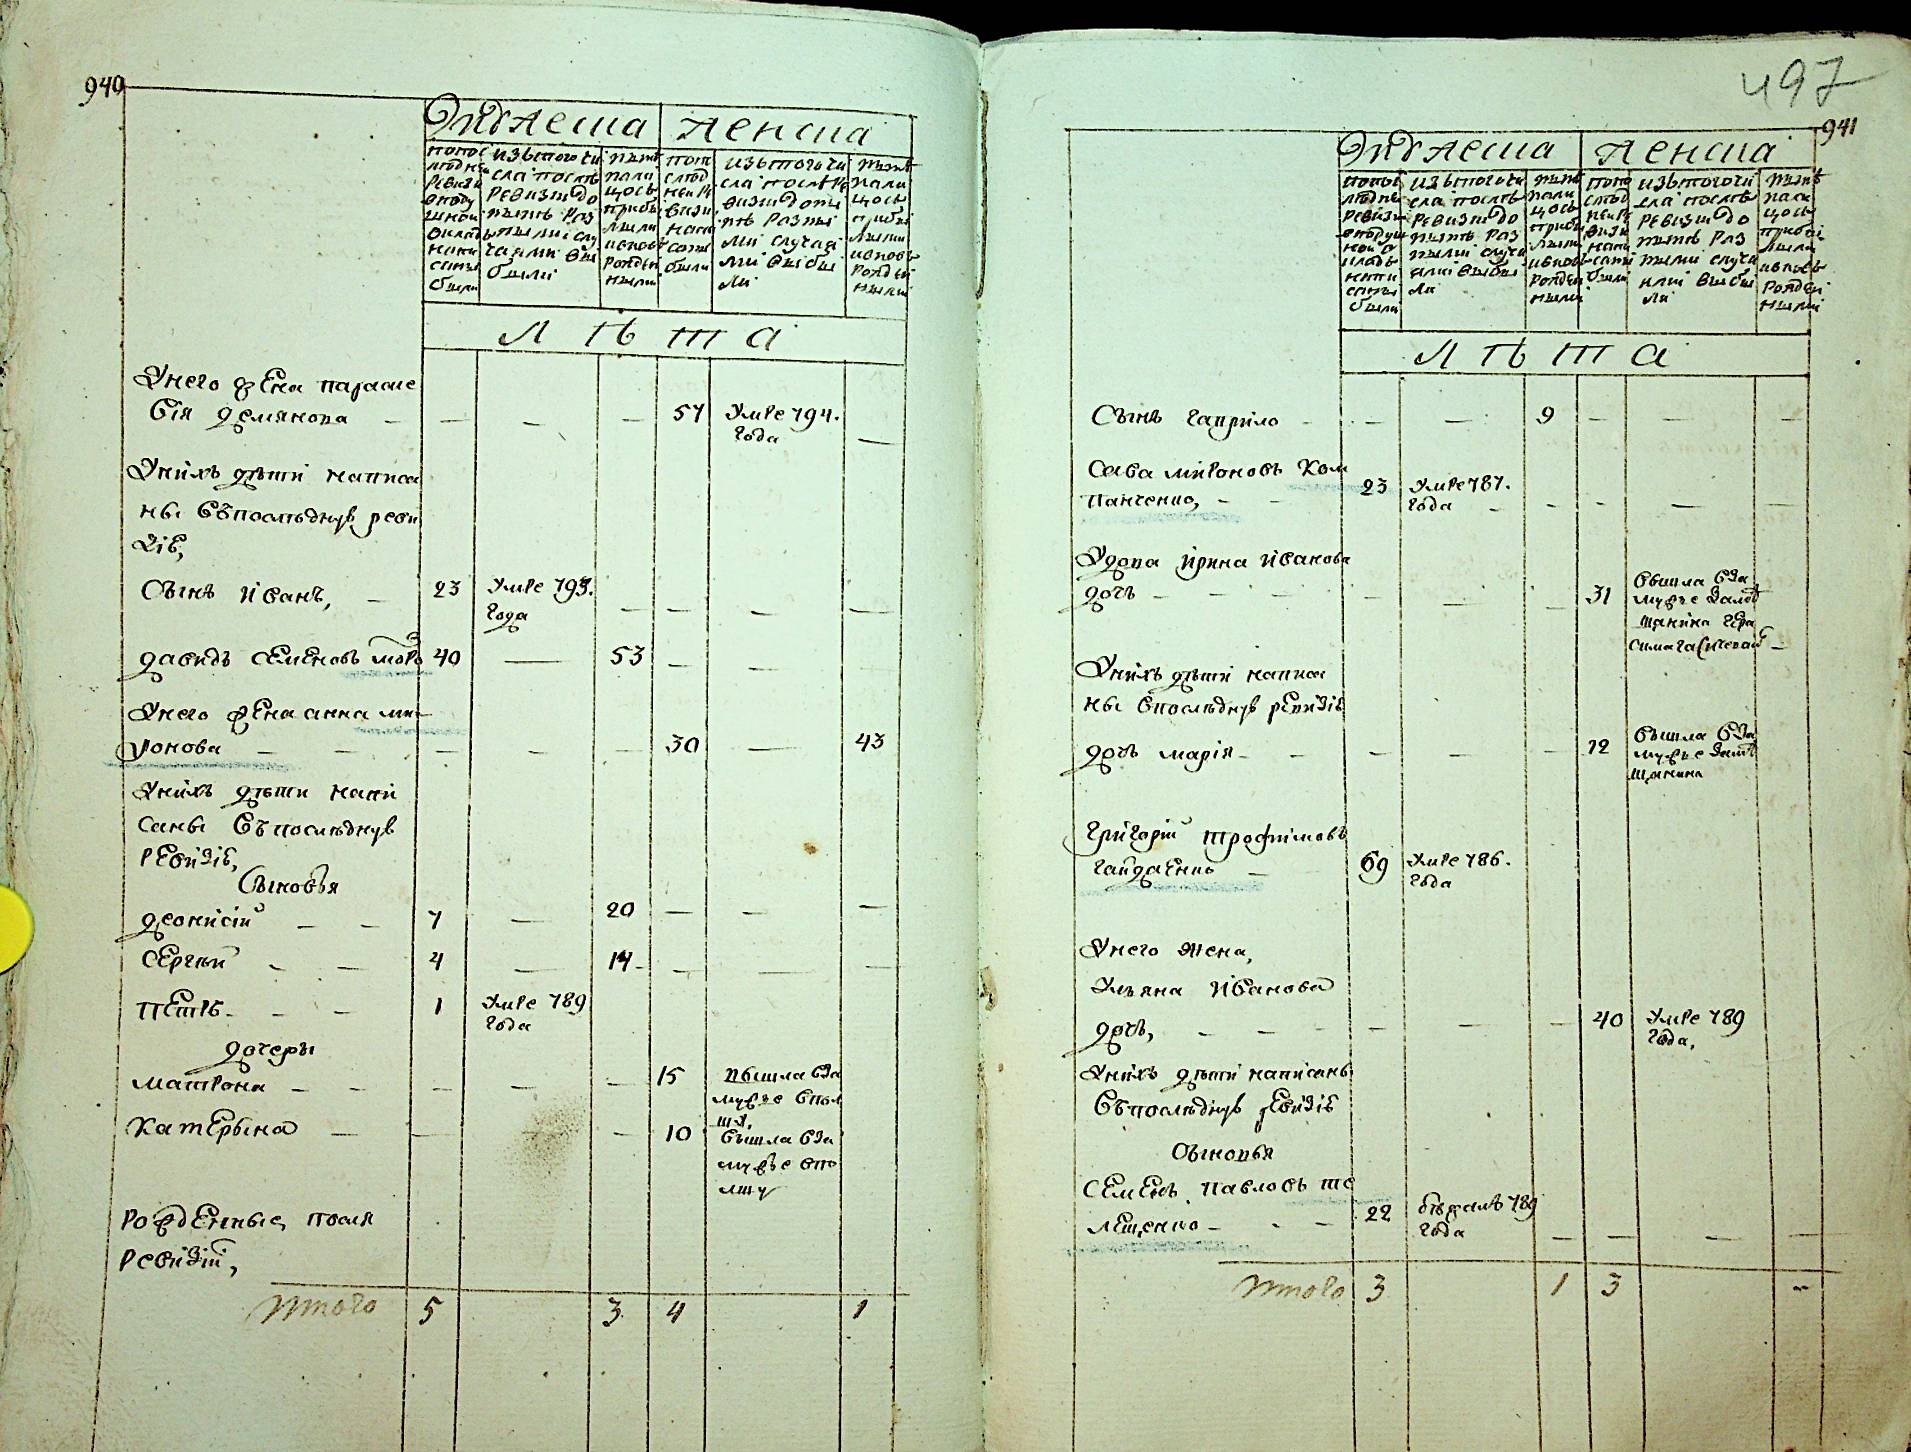 940
Мужеска Женска
попос
лѣдне
ревизи
в поду
шной
окладъ
напи
саны
были
изъ того чи
сла послѣ
ревизии до
нынѣ раз
ными слу
чаями вы
были
нынѣ
нали
цось
прибы
лыми
и вновь
рожден
ными
поп
слѣд
ней ре
визи
напи
саны
были
изъ того чи
сла послѣ ре
визии до ны
нѣ разны
ми случая
ми выбы
ли
нынѣ
нали
цось
прибы
лыми
и вновь
рожден
ными
Лѣта
У него жена параске
вія демянова - - - - 57 умре 794.
года -
У нихъ дѣти написа
ны въ послѣднуѣ реви
зіѣ,
Сынъ иванъ, - 23 умре 793.
года - - - -
давидъ семеновъ моро 40 - 53 - -
У него жена анна ми
ронова - - - - - 30 - 43
У нихъ дѣти напи
саны въ послѣднуѣ
ревизіѣ,
Сыновья
деонисій - - 7 - 20 - - -
сергѣй - - 4 - 14 - - - -
петръ - - - 1 умре 789
года
дочеры
матрона - - - - - 15 вышла въза
мужъе в пол
шу,
катерына - - - 10 вышла въза
мужъе в по
лшу
рожденные после
ревизіи,
Итого 5 3 4 1
497
941
Мужеска Женска
попос
лѣдне
ревизи
в подуш
ной о
кладъ
напи
саны
были
изъ того чи
сла послѣ
ревизии до
нынѣ раз
ными случа
ями выбы
ли
нынѣ
нали
цось
прибы
лыми
и вновь
рожден
ными
попо
слѣд
ней ре
визи
напи
саны
были
изъ того чи
сла послѣ
ревизии до
нынѣ раз
ными случа
ями выбы
ли
нынѣ
нали
цось
прибы
лыми
и вновь
рожден
ными
Лѣта
Сынъ гаврило - - - 9 - - -
Сава мироновъ Ком
панченко, - - 23 умре 787.
года - - - - -
Удова ирина иванова
дочь - - - - - - 31 вышла въза
мужъе
У нихъ дѣти написа
ны в послѣднуѣ ревизіѣ
дочь марія - - - - 12 вышла въза
мужъе
Григорій трофимовъ
гайдаенко - 69 умре 786.
года
У него жена,
Ульяна Иванова
дочь, - - - - - - 40 умре 789
года,
У нихъ дѣти написаны
въ послѣднуѣ ревизіѣ
Сыновья
семенъ павловъ те
лещенко - - - 22 бѣжалъ 789
года - - - -
Итого 3 1 3 -